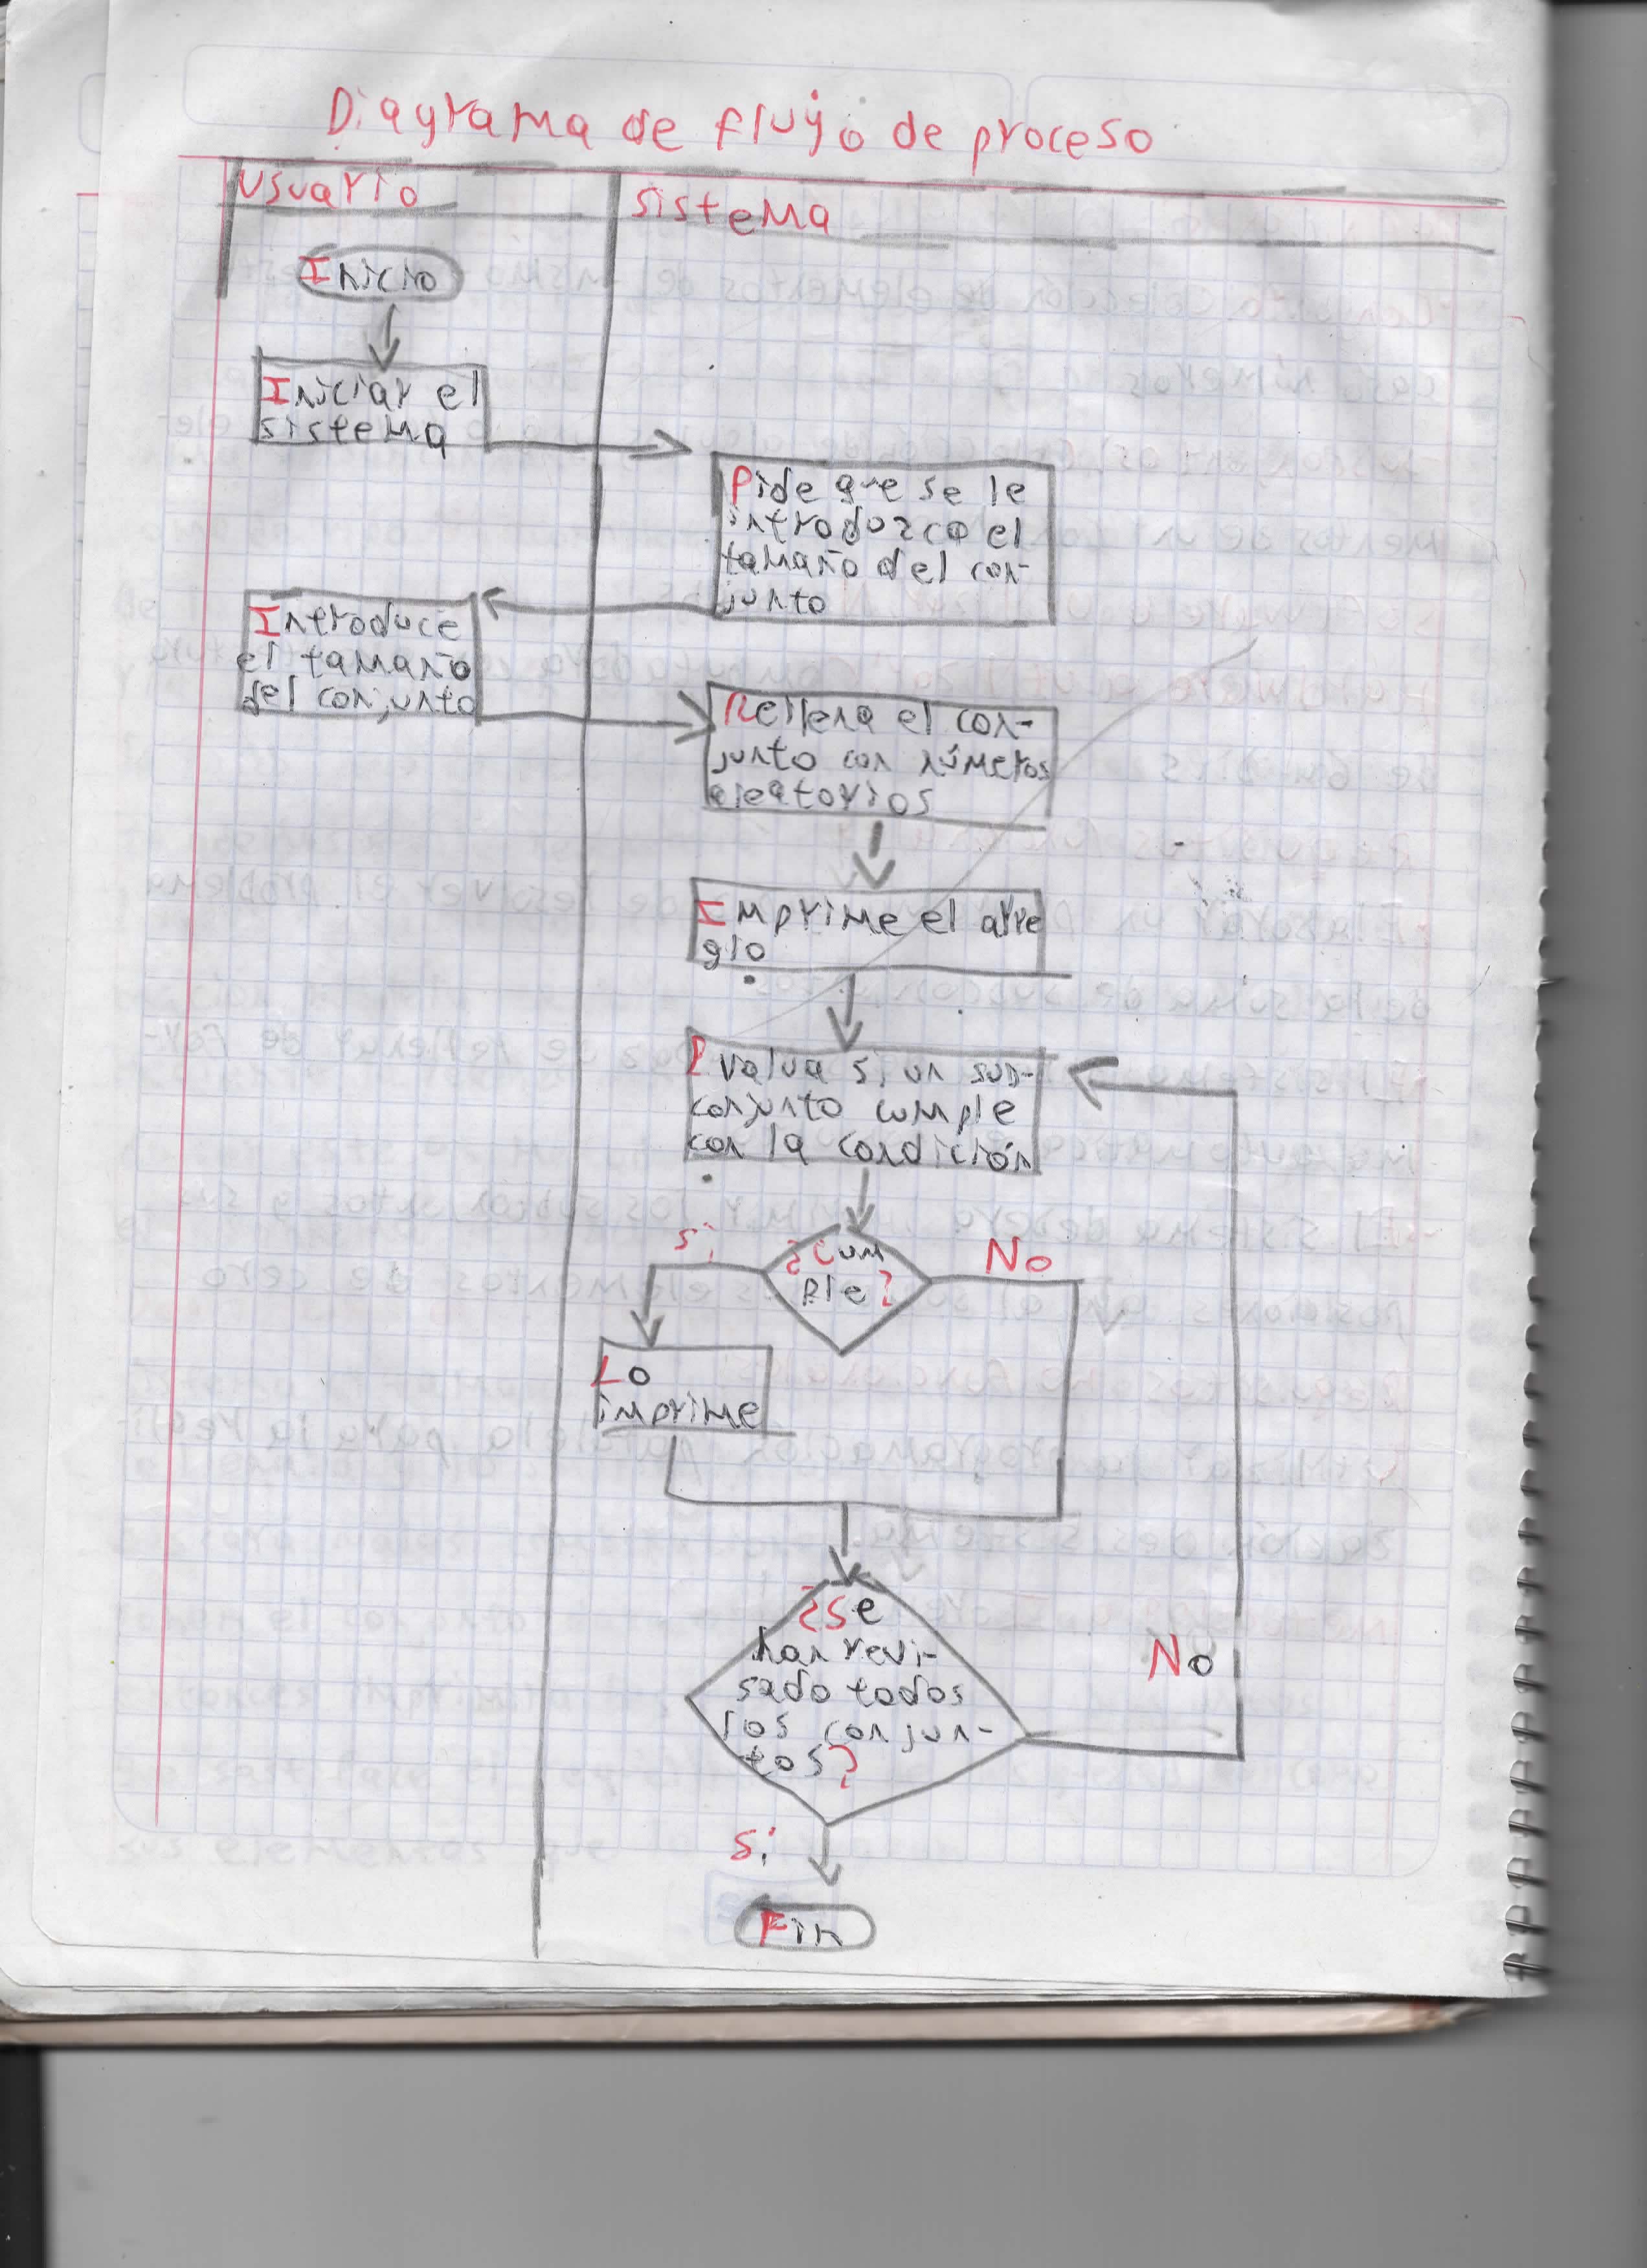 Diagrama de flujo de proceso
Usuario
sistema
Inicio
Iniciar el
sistema
Pide que se le
introduzca el
tamaño del con-
junto
Introduce
el tamaño
del conjunto
Rellena el con-
junto con números
aleatorios
Imprime el arre
glo
Evalua si un sub-
conjunto cumple
con la condición
si
¿Cum
ple?
No
Lo
imprime
¿Se
han revi-
sado todos
los conjun-
tos?
No
si
Fin